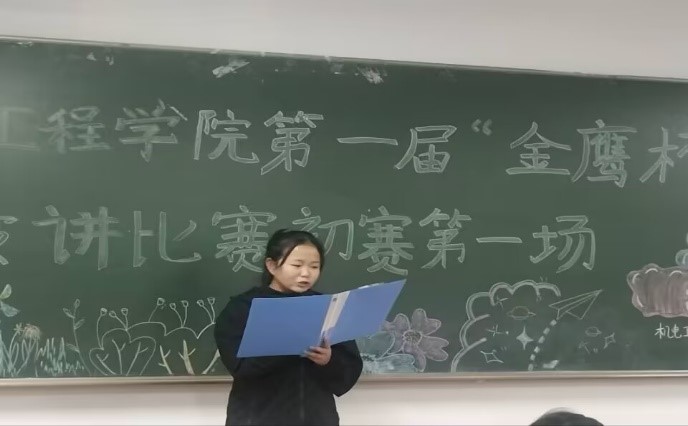 工程学院第一届“金鹰杯
演讲比赛初赛第一场
机电工